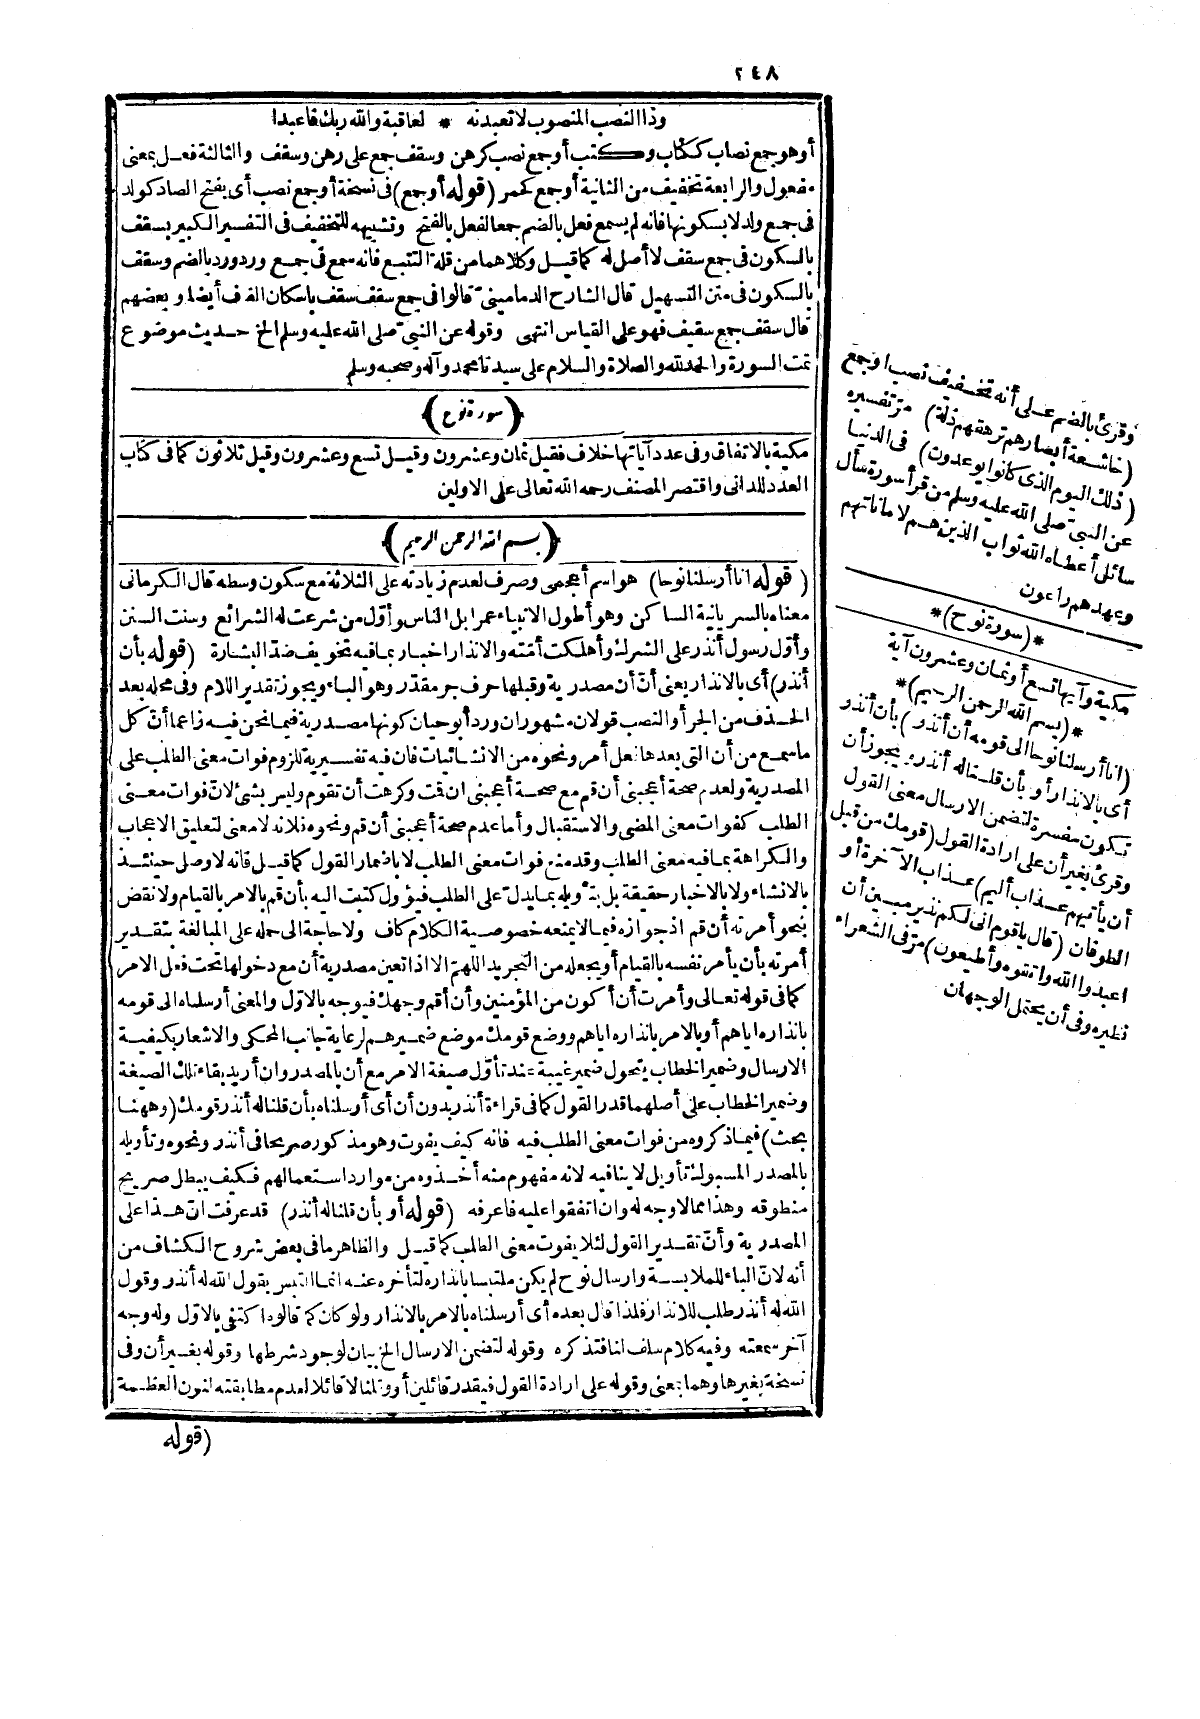 ٢٤٨
وذا النصب المنصوب لا تعبدنه * لعاقبة والله ربك فاعبدا
أو هو جمع نصاب ككتاب وكتب أو جمع نصب كرهن وسقف جمع على رهن وسقف والثالثة فعل بمعنى
مفعول والرابعة تخفيف من الثانية أو جمع كحمر (قوله أو جمع) فى نسخة أو جمع نصب أى بفتح الصاد كولد
فى جمع ولد لا بسكونها فانه لم يسمع فعل بالضم جمعا لفعل بالفتح وتشبيهه للتخفيف فى التفسير الكبير بسقف
بالسكون فى جمع سقف لا أصل له كما قيل وكلاهما من قلة التتبع فانه سمع فى جمع ورد ورد بالضم وسقف
بالسكون فى متن التسهيل قال الشارح الدمامينى قالوا فى جمع سقف سقف باسكان القاف أيضا وبعضهم
قال سقف جمع سقيف فهو على القياس انتهى وقوله عن النبى صلى الله عليه وسلم الخ حديث موضوع
تمت السورة والحمد لله والصلاة والسلام على سيدنا محمد وآله وصحبه وسلم
(سورة نوح)
مكية بالاتفاق وفى عدد آياتها خلاف فقيل ثمان وعشرون وقيل تسع وعشرون وقيل ثلاثون كما فى كتاب
العدد للدانى واقتصر المصنف رحمه الله تعالى على الاولين
(بسم الله الرحمن الرحيم)
(قوله انا أرسلنا نوحا) هو اسم أعجمى وصرف لعدم زيادته على الثلاثة مع سكون وسطه قال الكرمانى
معناه بالسريانية الساكن وهو أطول الانبياء عمرا بل الناس وأول من شرعت له الشرائع وسنت السنن
وأول رسول أنذر على الشرك وأهلكت أمته والانذار اخبار بما فيه تخويف ضد البشارة (قوله بأن
أنذر) أى بالانذار يعنى أن أن مصدرية وقبلها حرف جر مقدر وهو الباء ويجوز تقدير اللام وفى محله بعد
الحذف من الجر أو النصب قولان مشهوران ورد أبو حيان كونها مصدرية فيما نحن فيه زاعما أن كل
ما سمع من أن التى بعدها فعل أمر ونحوه من الانشائيات فان فيه تفسيرية للزوم فوات معنى الطلب على
المصدرية ولعدم صحة أعجبنى أن قم مع صحة أعجبنى ان قمت وكرهت أن تقوم وليس بشئ لان فوات معنى
الطلب كفوات معنى المضى والاستقبال وأما عدم صحة أعجبنى أن قم ونحوه فلانه لا معنى لتعليق الاعجاب
والكراهة بما فيه معنى الطلب وقد منع فوات معنى الطلب لا باضمار القول كما قيل فانه لا وصل حينئذ
بالانشاء ولا بالاخبار حقيقة بل بتأويله بما يدل على الطلب فيؤول كتبت اليه بأن قم بالامر بالقيام ولا نقض
بنحو أمرته أن قم اذ جوازه فيما لا يمنعه خصوصية الكلام كاف ولا حاجة الى حمله على المبالغة بتقدير
أمرته بأن يأمر نفسه بالقيام أو يجعله من التجريد اللهم الا اذا تعين مصدرية أن مع دخولها تحت فعل الامر
كما فى قوله تعالى وأمرت أن أكون من المؤمنين وأن أقم وجهك فيوجه بالاول والمعنى أرسلناه الى قومه
بانذاره اياهم أو بالامر بانذاره اياهم ووضع قومك موضع ضميرهم لرعاية جانب المحكى والاشعار بكيفية
الارسال وضمير الخطاب يتحول ضمير غيبة عند تأول صيغة الامر مع أن بالمصدر وان أريد بقاء تلك الصيغة
وضمير الخطاب على أصلهما قدر القول كما فى قراءة أنذر بدون أن أى أرسلناه بأن قلنا له أنذر قومك (وههنا
بحث) فيما ذكروه من فوات معنى الطلب فيه فانه كيف يفوت وهو مذكور صريحا فى أنذر ونحوه وتأويله
بالمصدر المسبوك تأويل لا ينافيه لانه مفهوم منه أخذوه من موارد استعمالهم فكيف يبطل صريح
منطوقه وهذا مما لا وجه له وان اتفقوا عليه فاعرفه (قوله أو بأن قلنا له أنذر) قد عرفت ان هذا على
المصدرية وأن تقدير القول لئلا يفوت معنى الطلب كما قيل والظاهر ما فى بعض شروح الكشاف من
أنه لان الباء للملابسة وارسال نوح لم يكن ملتبسا بانذاره لتأخره عنه انما التبس بقول الله له أنذر وقول
الله له أنذر طلب للانذار فلذا قال بعده أى أرسلناه بالامر بالانذار ولو كان كما قالوه اكتفى بالاول وله وجه
آخر سمعته وفيه كلام سلف لنا فتذكره وقوله لتضمن الارسال الخ بيان لوجود شرطها وقوله بغير أن وفى
نسخة بغيرها وهما بمعنى وقوله على ارادة القول فيقدر قائلين أو وقلنا لا قائلا لعدم مطابقته لنون العظمة
(قوله
وقرئ بالضم على أنه تخفيف نصب أو جمع
(خاشعة أبصارهم ترهقهم ذلة) مر تفسيره
(ذلك اليوم الذى كانوا يوعدون) فى الدنيا
عن النبى صلى الله عليه وسلم من قرأ سورة سأل
سائل أعطاه الله ثواب الذين هم لاماناتهم
وعهدهم راعون
*(سورة نوح)*
مكية وآيها تسع أو ثمان وعشرون آية
*(بسم الله الرحمن الرحيم)*
(انا أرسلنا نوحا الى قومه أن أنذر) بأن أنذر
أى بالانذار أو بأن قلنا له أنذر ويجوز أن
تكون مفسرة لتضمن الارسال معنى القول
وقرئ بغير أن على ارادة القول (قومك من قبل
أن يأتيهم عذاب أليم) عذاب الآخرة أو
الطوفان (قال يا قوم انى لكم نذير مبين أن
اعبدوا الله واتقوه وأطيعون) مر فى الشعراء
نظيره وفى أن يحتمل الوجهان